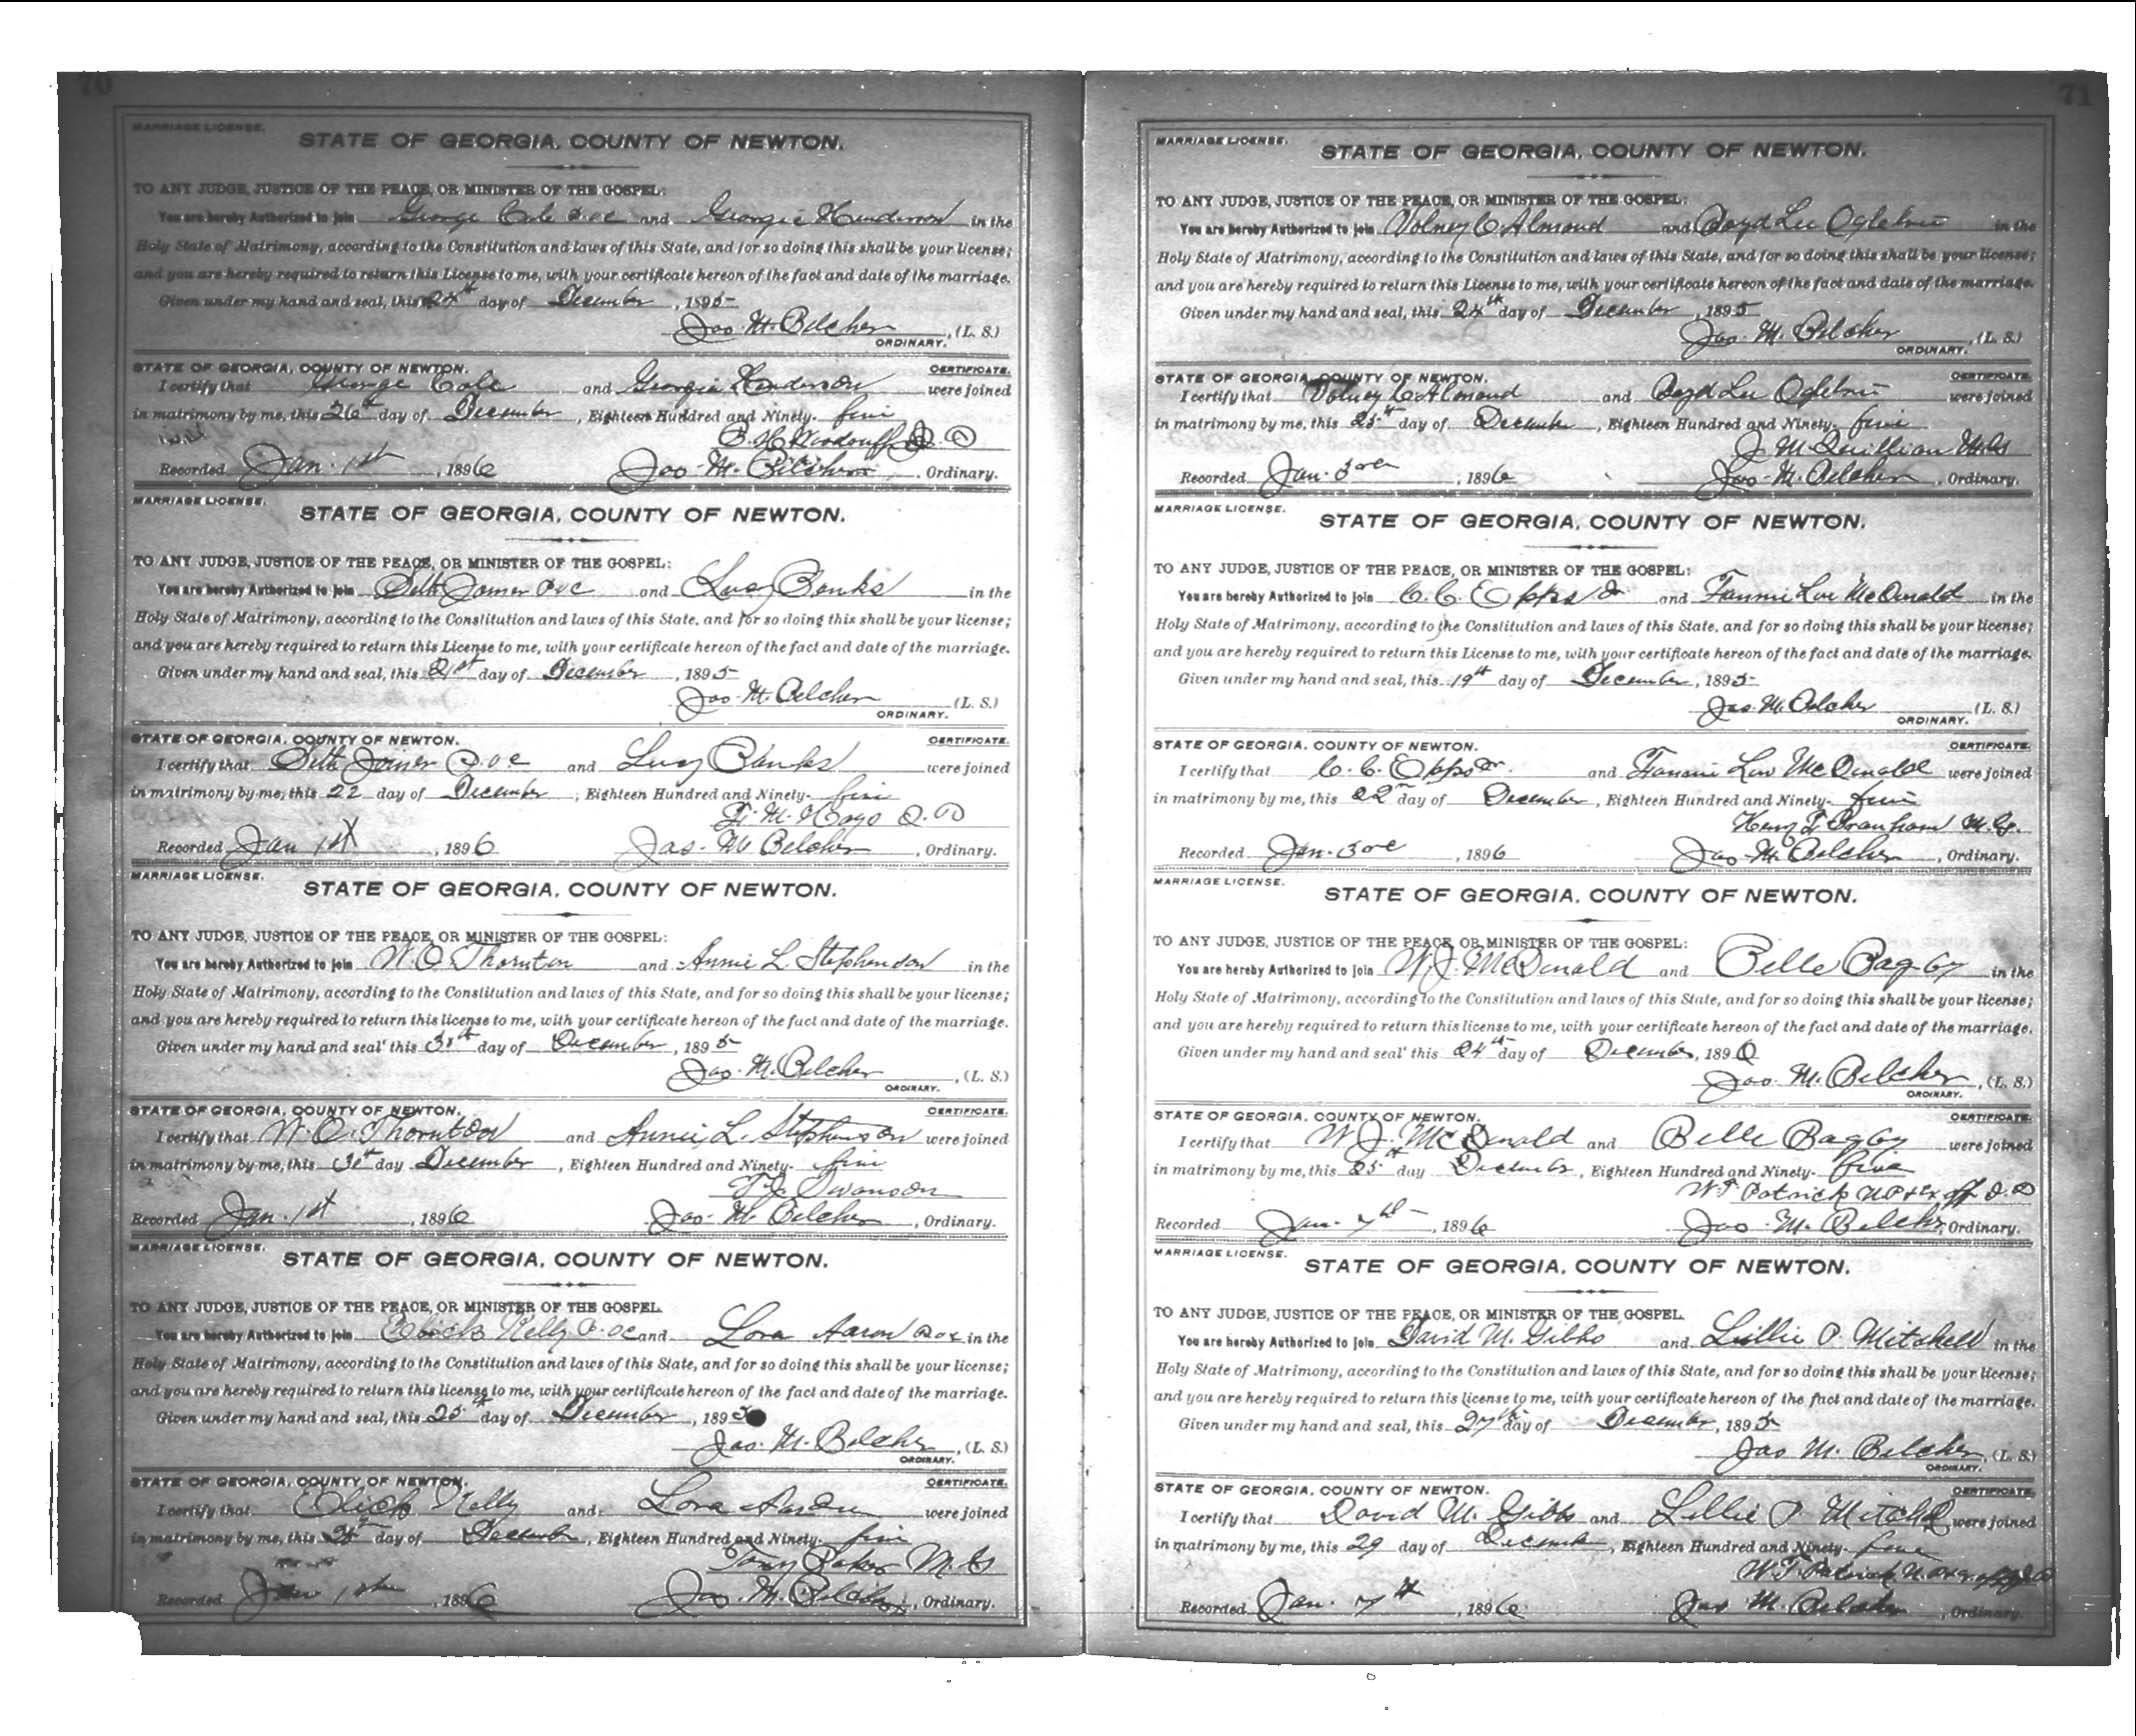 70
MARRIAGE LICENSE.
STATE OF GEORGIA, COUNTY OF NEWTON.
TO ANY JUDGE, JUSTICE OF THE PEACE, OR MINISTER OF THE GOSPEL:
You are hereby Authorized to join George Cole and Georgia Henderson in the
Holy State of Matrimony, according to the Constitution and laws of this State, and for so doing this shall be your license;
and you are hereby required to return this License to me, with your certificate hereon of the fact and date of the marriage.
Given under my hand and seal, this 24th day of December, 1895
Jas. M. Belcher, (L. S.)
ORDINARY.
STATE OF GEORGIA, COUNTY OF NEWTON. CERTIFICATE.
I certify that George Cole and Georgia Henderson were joined
in matrimony by me, this 26th day of December, Eighteen Hundred and Ninety- five
B. H. Woodruff J. P.
Recorded Jan. 1st, 1896 Jas. M. Belcher, Ordinary.
MARRIAGE LICENSE.
STATE OF GEORGIA, COUNTY OF NEWTON.
TO ANY JUDGE, JUSTICE OF THE PEACE, OR MINISTER OF THE GOSPEL:
You are hereby Authorized to join Seth Joiner and Lucy Banks in the
Holy State of Matrimony, according to the Constitution and laws of this State, and for so doing this shall be your license;
and you are hereby required to return this License to me, with your certificate hereon of the fact and date of the marriage.
Given under my hand and seal, this 21st day of December, 1895
Jas. M. Belcher (L. S.)
ORDINARY.
STATE OF GEORGIA, COUNTY OF NEWTON. CERTIFICATE.
I certify that Seth Joiner and Lucy Banks were joined
in matrimony by me, this 22 day of December, Eighteen Hundred and Ninety- five
M. J. P.
Recorded Jan 1st, 1896 Jas. M. Belcher, Ordinary.
MARRIAGE LICENSE.
STATE OF GEORGIA, COUNTY OF NEWTON.
TO ANY JUDGE, JUSTICE OF THE PEACE, OR MINISTER OF THE GOSPEL:
You are hereby Authorized to join W. O. Thornton and Annie L. Stephenson in the
Holy State of Matrimony, according to the Constitution and laws of this State, and for so doing this shall be your license;
and you are hereby required to return this license to me, with your certificate hereon of the fact and date of the marriage.
Given under my hand and seal' this day of December, 1895
Jas. M. Belcher, (L. S.)
ORDINARY.
STATE OF GEORGIA, COUNTY OF NEWTON. CERTIFICATE.
I certify that W. O. Thornton and Annie L. Stephenson were joined
in matrimony by me, this day December, Eighteen Hundred and Ninety- five
Swanson
Recorded Jan. 1st, 1896 Jas. M. Belcher, Ordinary.
MARRIAGE LICENSE.
STATE OF GEORGIA, COUNTY OF NEWTON.
TO ANY JUDGE, JUSTICE OF THE PEACE, OR MINISTER OF THE GOSPEL.
You are hereby Authorized to join Kelly and Lora Aaron in the
Holy State of Matrimony, according to the Constitution and laws of this State, and for so doing this shall be your license;
and you are hereby required to return this license to me, with your certificate hereon of the fact and date of the marriage.
Given under my hand and seal, this 25th day of December, 1895
Jas. M. Belcher, (L. S.)
ORDINARY.
STATE OF GEORGIA, COUNTY OF NEWTON. CERTIFICATE.
I certify that Elick Kelly and Lora Aaron were joined
in matrimony by me, this day of December, Eighteen Hundred and Ninety- five
Baker M. G.
Recorded Jan 1st, 1896 Jas. M. Belcher, Ordinary.
71
MARRIAGE LICENSE.
STATE OF GEORGIA, COUNTY OF NEWTON.
TO ANY JUDGE, JUSTICE OF THE PEACE, OR MINISTER OF THE GOSPEL:
You are hereby Authorized to join Volney C Almond and Boyd Lee Ogletree in the
Holy State of Matrimony, according to the Constitution and laws of this State, and for so doing this shall be your license;
and you are hereby required to return this License to me, with your certificate hereon of the fact and date of the marriage.
Given under my hand and seal, this 24th day of December, 1895
Jas. M. Belcher, (L. S.)
ORDINARY.
STATE OF GEORGIA, COUNTY OF NEWTON. CERTIFICATE.
I certify that Volney C. Almond and Boyd Lee Ogletree were joined
in matrimony by me, this 25th day of December, Eighteen Hundred and Ninety- five
J M. Quillian M. G
Recorded Jan. 3rd, 1896 Jas. M. Belcher, Ordinary.
MARRIAGE LICENSE.
STATE OF GEORGIA, COUNTY OF NEWTON.
TO ANY JUDGE, JUSTICE OF THE PEACE, OR MINISTER OF THE GOSPEL:
You are hereby Authorized to join C. C. Epps Jr and Fannie Lou McDonald in the
Holy State of Matrimony, according to the Constitution and laws of this State, and for so doing this shall be your license;
and you are hereby required to return this License to me, with your certificate hereon of the fact and date of the marriage.
Given under my hand and seal, this 19th day of December, 1895
Jas. M. Belcher (L. S.)
ORDINARY.
STATE OF GEORGIA, COUNTY OF NEWTON. CERTIFICATE.
I certify that C. C. Epps Jr. and Fannie Lou McDonald were joined
in matrimony by me, this 22nd day of December, Eighteen Hundred and Ninety- five
Henry Branham M. G.
Recorded Jan. 3rd, 1896 Jas. M. Belcher, Ordinary.
MARRIAGE LICENSE.
STATE OF GEORGIA, COUNTY OF NEWTON.
TO ANY JUDGE, JUSTICE OF THE PEACE, OR MINISTER OF THE GOSPEL:
You are hereby Authorized to join W. J. McDonald and Belle Bagby in the
Holy State of Matrimony, according to the Constitution and laws of this State, and for so doing this shall be your license;
and you are hereby required to return this license to me, with your certificate hereon of the fact and date of the marriage.
Given under my hand and seal' this 24th day of December, 189
Jas. M. Belcher, (L. S.)
ORDINARY.
STATE OF GEORGIA, COUNTY OF NEWTON. CERTIFICATE.
I certify that W. J. McDonald and Belle Bagby were joined
in matrimony by me, this 25th day December, Eighteen Hundred and Ninety- five
W. T. Patrick N P & Ex off J. P.
Recorded Jan. 7th, 1896 Jas. M. Belcher, Ordinary.
MARRIAGE LICENSE.
STATE OF GEORGIA, COUNTY OF NEWTON.
TO ANY JUDGE, JUSTICE OF THE PEACE, OR MINISTER OF THE GOSPEL.
You are hereby Authorized to join David M. Gibbs and Lillie P. Mitchell in the
Holy State of Matrimony, according to the Constitution and laws of this State, and for so doing this shall be your license;
and you are hereby required to return this license to me, with your certificate hereon of the fact and date of the marriage.
Given under my hand and seal, this 27th day of December, 1895
Jas M. Belcher, (L. S.)
ORDINARY.
STATE OF GEORGIA, COUNTY OF NEWTON. CERTIFICATE.
I certify that David M. Gibbs and Lillie P. Mitchell were joined
in matrimony by me, this 29 day of December, Eighteen Hundred and Ninety- five
W. T. Patrick N. P. & Ex off J P
Recorded Jan. 7th, 1896 Jas M. Belcher, Ordinary.